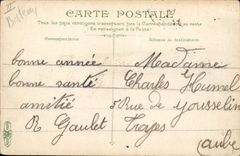 CARTE POSTALE
Tous les pays étrangers n'acceptent pas la Correspondance au recto
(Se renseigner à la Poste)
Correspondance
Adresse du destinataire
bonne année
bonne santé
amitié
R Gaulet
Madame
Charles Humel
5 Rue de Yousselin
Troyes
(aube